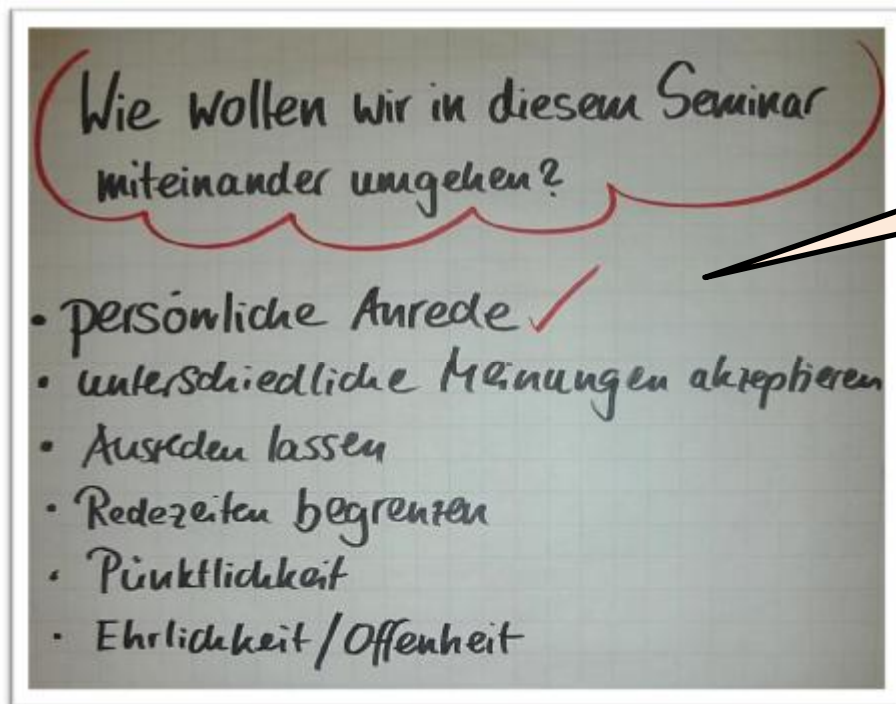 Wie wollen wir in diesem Seminar
miteinander umgehen?
• persönliche Anrede ✓
• unterschiedliche Meinungen akzeptieren
• Ausreden lassen
• Redezeiten begrenzen
• Pünktlichkeit
• Ehrlichkeit/Offenheit